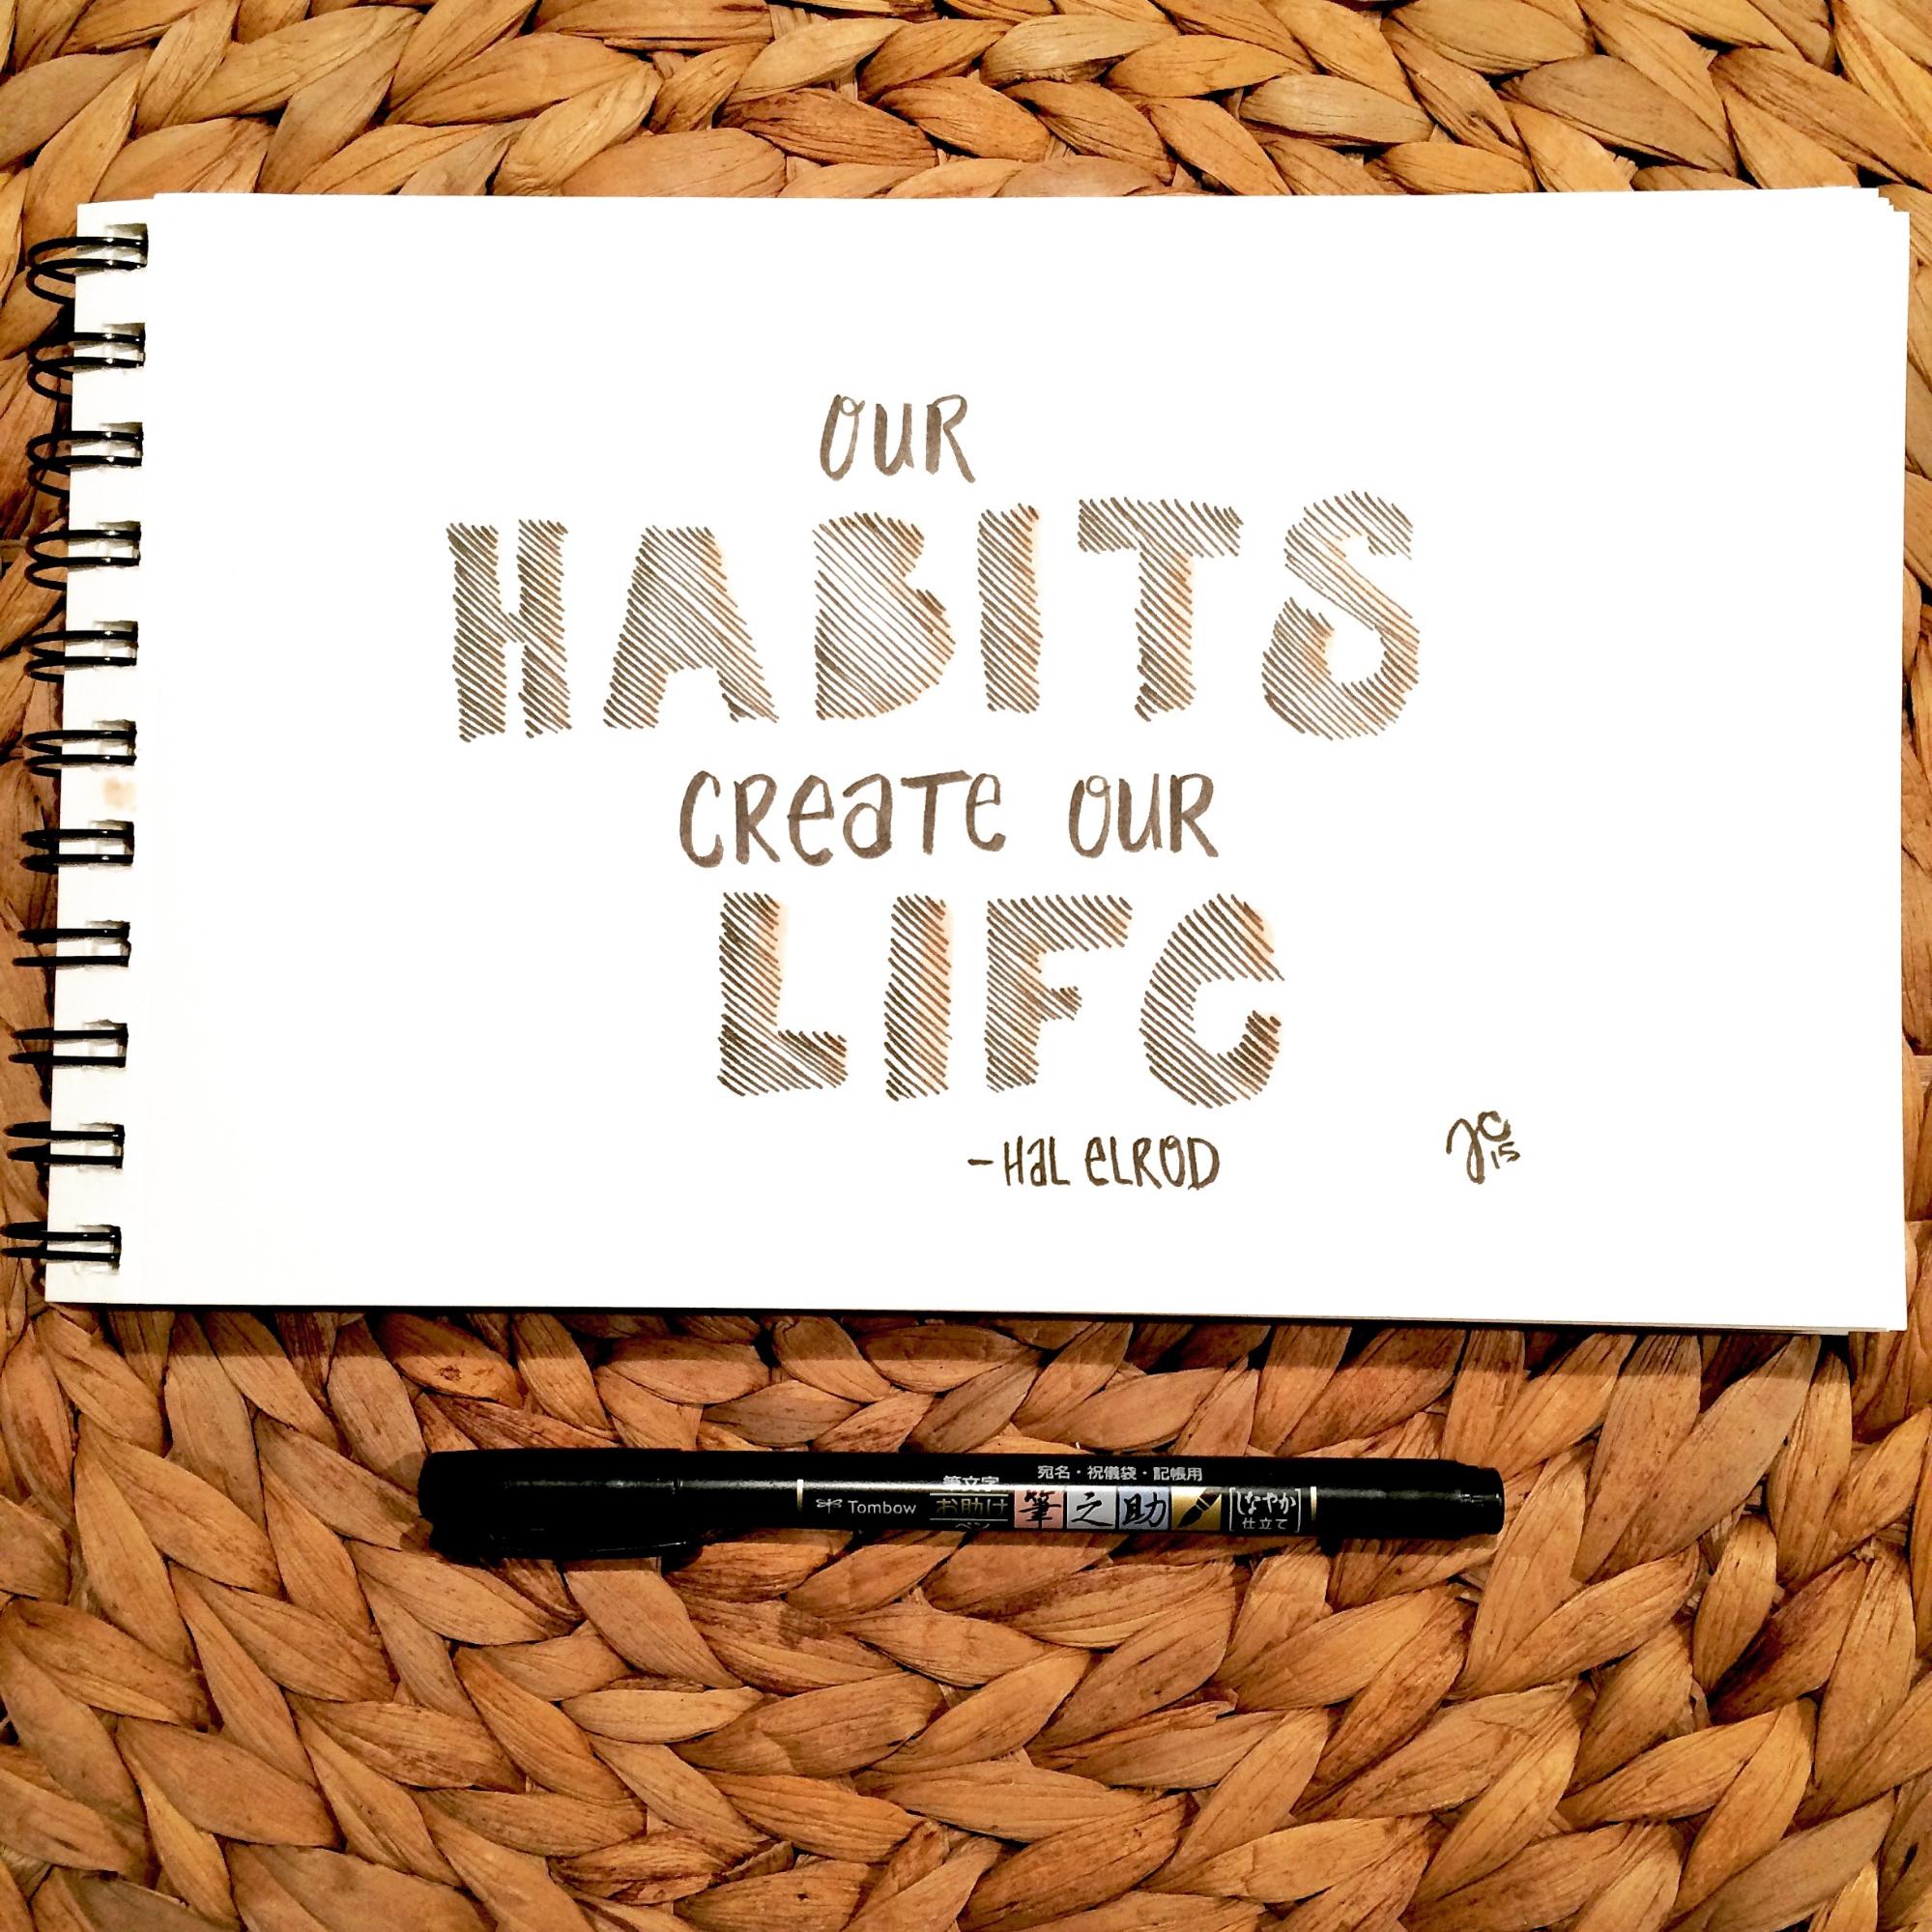 OUR
HABITS
CREATE OUR
LIFE
-HAL ELROD
JC
15
宛名・祝儀袋・記帳用
Tombow
筆文字
お助け
ペン
筆之助
しなやか
仕立て